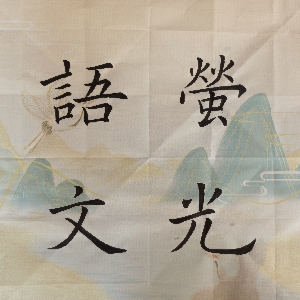 螢光
語文